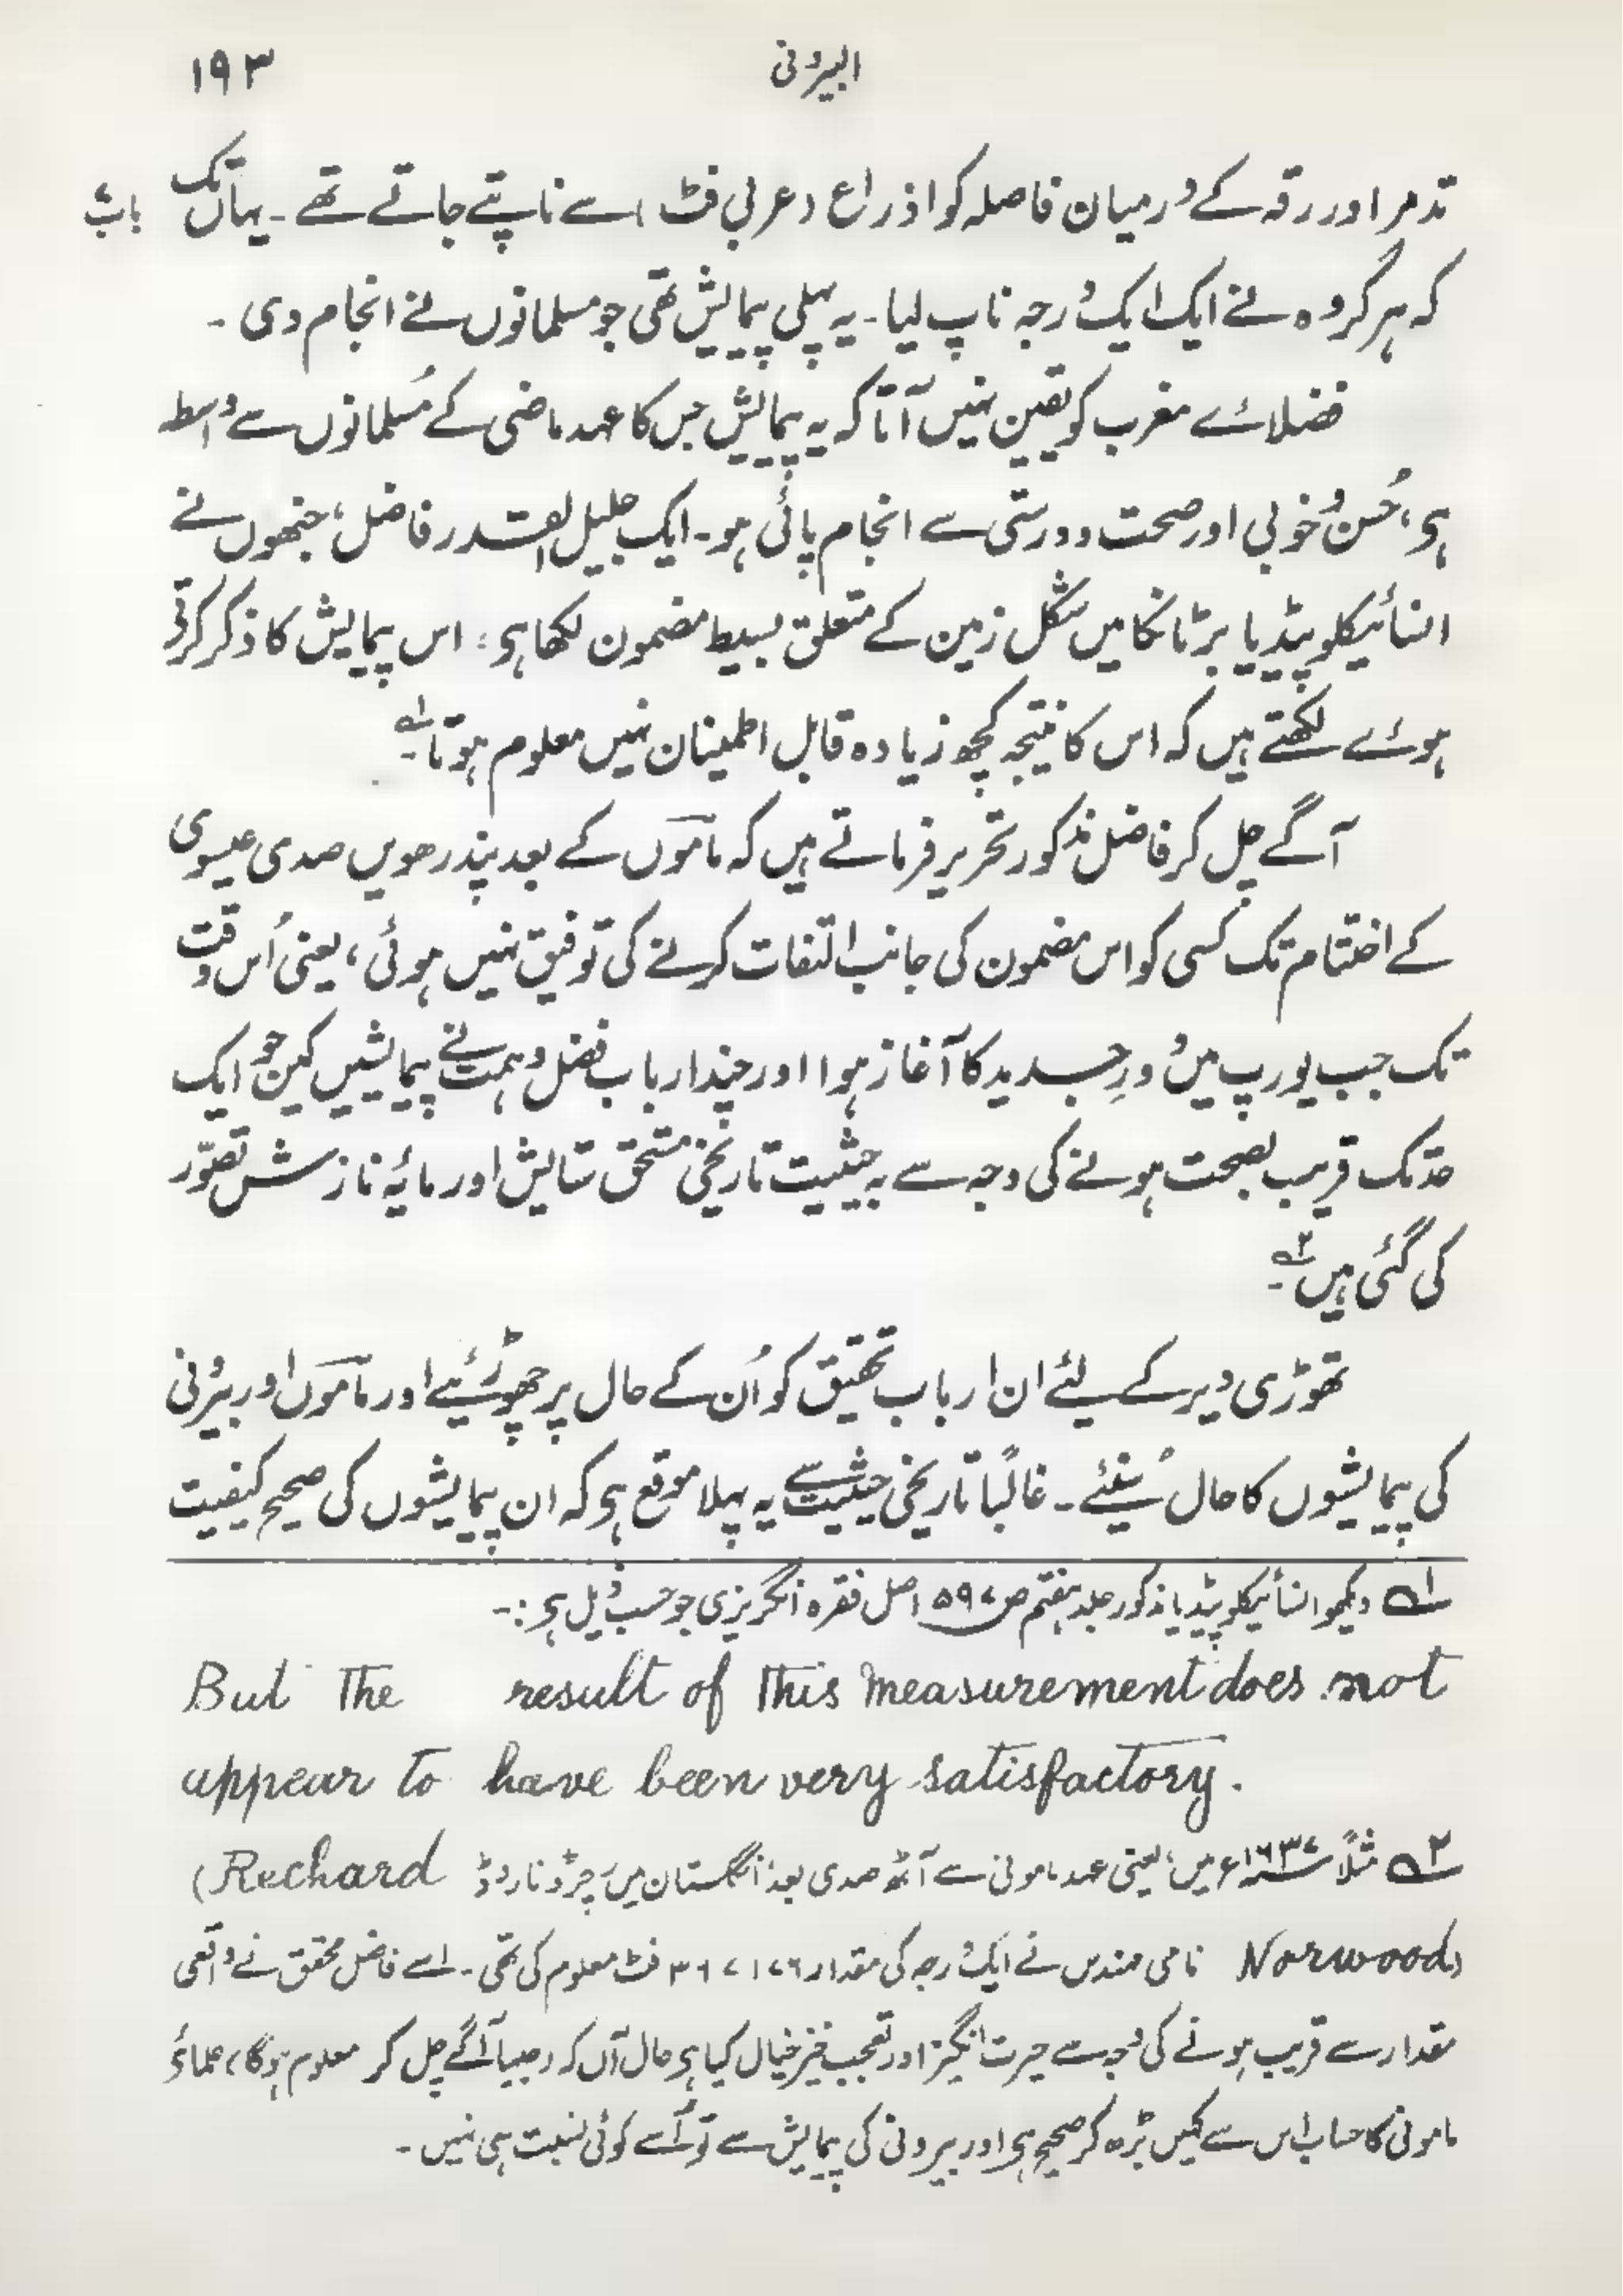 البیرونی ۱۹۳
تدمر اور رقہ کے درمیان فاصلہ کو اذراع (عربی فٹ) سے ناپتے جاتے تھے ۔ یہاں تک
کہ ہر گروہ نے ایک ایک درجہ ناپ لیا ۔ یہ پہلی پیمایش تھی جو مسلمانوں نے انجام دی ۔
فضلائے مغرب کو یقین نہیں آتا کہ یہ پیمایش جس کا عہد ماضی کے مُسلمانوں سے واسطہ
ہی، حُسن و خوبی اور صحت و درستی سے انجام پائی ہو ۔ ایک جلیل القدر فاضل، جنھوں نے
انسائیکلوپیڈیا برٹانکا میں شکل زمین کے متعلق بسیط مضمون لکھا ہی؛ اس پیمایش کا ذکر کرتے
ہوئے لکھتے ہیں کہ اس کا نتیجہ کچھ زیادہ قابل اطمینان نہیں معلوم ہوتا ۱؎ ۔
آگے چل کر فاضل مذکور تحریر فرماتے ہیں کہ ماموں کے بعد پندرھویں صدی عیسوی
کے اختتام تک کسی کو اس مضمون کی جانب التفات کرنے کی توفیق نہیں ہوئی، یعنی اُس وقت
تک جب یورپ میں دورِ جدید کا آغاز ہوا اور چند ارباب فضل و ہمت نے پیمایشیں کیں جو ایک
حد تک قریب بصحت ہونے کی وجہ سے بہ حیثیت تاریخی مستحق ستایش اور مائیہ نازش تصوّر
کی گئی ہیں ۲؎ ۔
تھوڑی دیر کے لئے ان ارباب تحقیق کو اُن کے حال پر چھوڑئیے اور ماموں اور بیرونی
کی پیمایشوں کا حال سُنئے ۔ غالبًا تاریخی حیثیت سے یہ پہلا موقع ہی کہ ان پیمایشوں کی صحیح کیفیت
۱؎ دیکھو انسائیکلوپیڈیا مذکور جلد ہفتم ص ۵۹۷ اصل فقرہ انگریزی جو حسب ذیل ہی :-
But The result of This measurement does not
appear to have been very satisfactory.
۲؎ مثلًا ۱۶۳۷ء میں، یعنی عہد مامونی سے آٹھ صدی بعد انگلستان میں رچرڈ نارووڈ (Rechard
Norwood) نامی مہندس نے ایک درجہ کی مقدار ۳۶۷۱۷۶ فٹ معلوم کی تھی ۔ اسے فاضل محقق نے واقعی
مقدار سے قریب ہونے کی وجہ سے حیرت انگیز اور تعجب خیز خیال کیا ہی حال آں کہ جیسا آگے چل کر معلوم ہوگا، علمائے
مامونی کا حساب اس سے کہیں بڑھ کر صحیح ہی اور بیرونی کی پیمایش سے تو اُسے کوئی نسبت ہی نہیں ۔